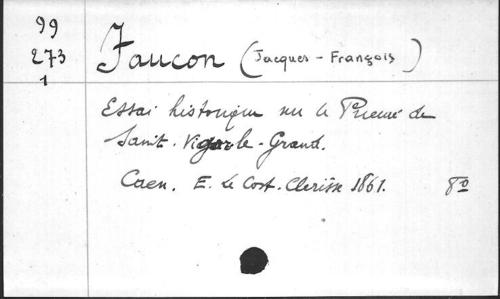 99
273
1
Faucon (Jacques - François)
Essai historique sur le Prieuré de
Saint-Vigor-le-Grand.
Caen. E. Le Cost-Clerisse 1861. 8º